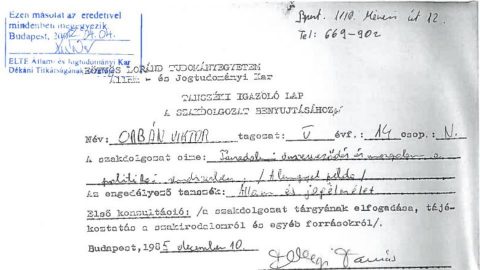 Ezen másolat az eredetivel
mindenben megegyezik.
Budapest, 04.04.
ELTE Állam- és Jogtudományi Kar
Dékáni Titkárságának
Bpest. 1118. Ménesi út 12.
Tel: 669-902
EÖTVÖS LORÁND TUDOMÁNYEGYETEM
Állam- és Jogtudományi Kar
TANSZÉKI IGAZOLÓ LAP
A SZAKDOLGOZAT BENYUJTÁSÁHOZ
Név: ORBÁN VIKTOR tagozat: V évf.: 14 csop.: N.
A szakdolgozat címe: Társadalmi önszerveződés és mozgalom a
politikai rendszerben; /A lengyel példa/
Az engedélyező tanszék: Állam és jogelmélet
Első konzultáció: /a szakdolgozat tárgyának elfogadása, tájé-
koztatás a szakirodalomról és egyéb forrásokról/.
Budapest, 1985 december 10.